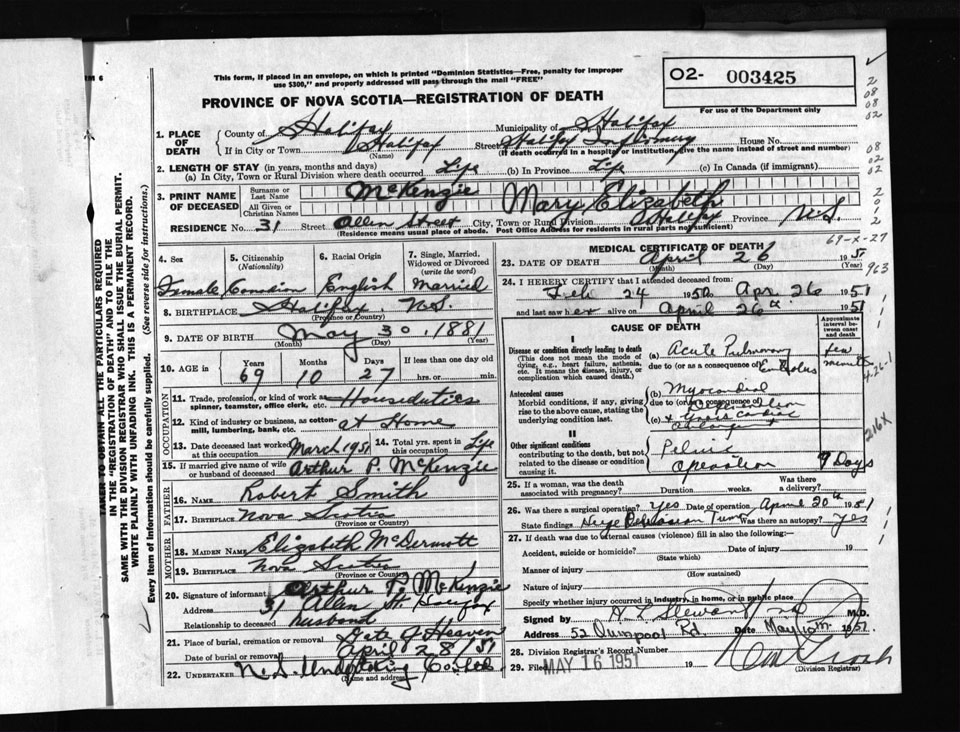 This form, if placed in an envelope, on which is printed "Dominion Statistics—Free, penalty for improper
use $300," and properly addressed will pass through the mail "FREE"
O2- 003425
For use of the Department only
PROVINCE OF NOVA SCOTIA—REGISTRATION OF DEATH
1. PLACE OF DEATH
County of Halifax Municipality of Halifax
If in City or Town Halifax (Name) Street Halifax Infirmary House No.
(If death occurred in a hospital or institution, give the name instead of street and number)
2. LENGTH OF STAY (in years, months and days)
(a) In City, Town or Rural Division where death occurred Life (b) In Province Life (c) In Canada (if immigrant)
3. PRINT NAME OF DECEASED
Surname or Last Name McKenzie
All Given or Christian Names Mary Elizabeth
RESIDENCE No. 31 Street Allen Street City, Town or Rural Division Halifax Province N.S.
(Residence means usual place of abode. Post Office Address for residents in rural parts not sufficient)
4. Sex Female
5. Citizenship (Nationality) Canadian
6. Racial Origin English
7. Single, Married, Widowed or Divorced (write the word) Married
8. BIRTHPLACE Halifax N.S.
(Province or Country)
9. DATE OF BIRTH May 30, 1881
(Month) (Day) (Year)
10. AGE Years 69 Months 10 Days 27 If less than one day old hrs. or min.
OCCUPATION
11. Trade, profession, or kind of work as spinner, teamster, office clerk, etc. Houseduties
12. Kind of industry or business, as cotton-mill, lumbering, bank, etc. at Home
13. Date deceased last worked at this occupation March 1951 14. Total yrs. spent in this occupation Life
15. If married give name of wife or husband of deceased Arthur P. McKenzie
FATHER
16. NAME Robert Smith
17. BIRTHPLACE Nova Scotia
(Province or Country)
MOTHER
18. MAIDEN NAME Elizabeth McDermott
19. BIRTHPLACE Nova Scotia
(Province or Country)
20. Signature of informant Arthur P. McKenzie
Address 31 Allen St. Halifax
Relationship to deceased husband
21. Place of burial, cremation or removal Gate of Heaven
Date of burial or removal April 28/51
22. UNDERTAKER N.S. Undertaking Co
(Name and address)
MEDICAL CERTIFICATE OF DEATH
23. DATE OF DEATH April 26 1951
(Month) (Day) (Year)
24. I HEREBY CERTIFY that I attended deceased from:
Feb 24 1950 Apr. 26 1951
and last saw her alive on April 26th 1951
CAUSE OF DEATH
Approximate interval between onset and death
I
Disease or condition directly leading to death
(This does not mean the mode of dying, e.g., heart failure, asthenia, etc. It means the disease, injury, or complication which caused death.)
(a) Acute Pulmonary Embolus few minutes
due to (or as a consequence of)
Antecedent causes
Morbid conditions, if any, giving rise to the above cause, stating the underlying condition last.
(b) Myocardial Degeneration
due to (or as a consequence of)
(c) & Gross cardiac enlargement
II
Other significant conditions
contributing to the death, but not related to the disease or condition causing it.
Pelvic Operation 7 Days
25. If a woman, was the death associated with pregnancy? Duration weeks. Was there a delivery?
26. Was there surgical operation? Yes Date of operation April 20th 1951
State findings Was there an autopsy? Yes
27. If death was due to external causes (violence) fill in also the following:
Accident, suicide or homicide? Date of injury 19
(State which)
Manner of injury
(How sustained)
Nature of injury
Specify whether injury occurred in industry, in home, or in public place
Signed by M.D.
Address 52 Quinpool Rd. Date May 10th 1951
28. Division Registrar's Record Number
29. Filed MAY 16 1951 19
(Division Registrar)
TAKEN TO OBTAIN ALL THE PARTICULARS REQUIRED
IN THE "REGISTRATION OF DEATH" AND TO FILE THE
SAME WITH THE DIVISION REGISTRAR WHO SHALL ISSUE THE BURIAL PERMIT.
WRITE PLAINLY WITH UNFADING INK. THIS IS A PERMANENT RECORD.
Every item of information should be carefully supplied. (See reverse side for instructions.)
69-X-27
963
4-26-1
216X